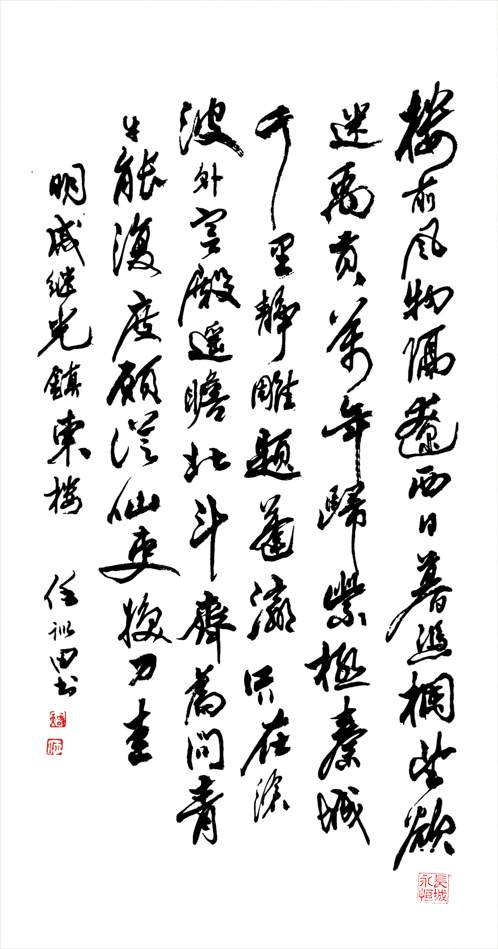 樓前風物隔遼西日暮憑欄望欲
迷禹貢萬年歸紫極秦城
千里靜雕題蓬瀛只在滄
波外宮殿遥瞻北斗齊為問青
牛能復度願從仙吏换刀圭
明戚继光鎮東楼
任訓田书
長城永恒